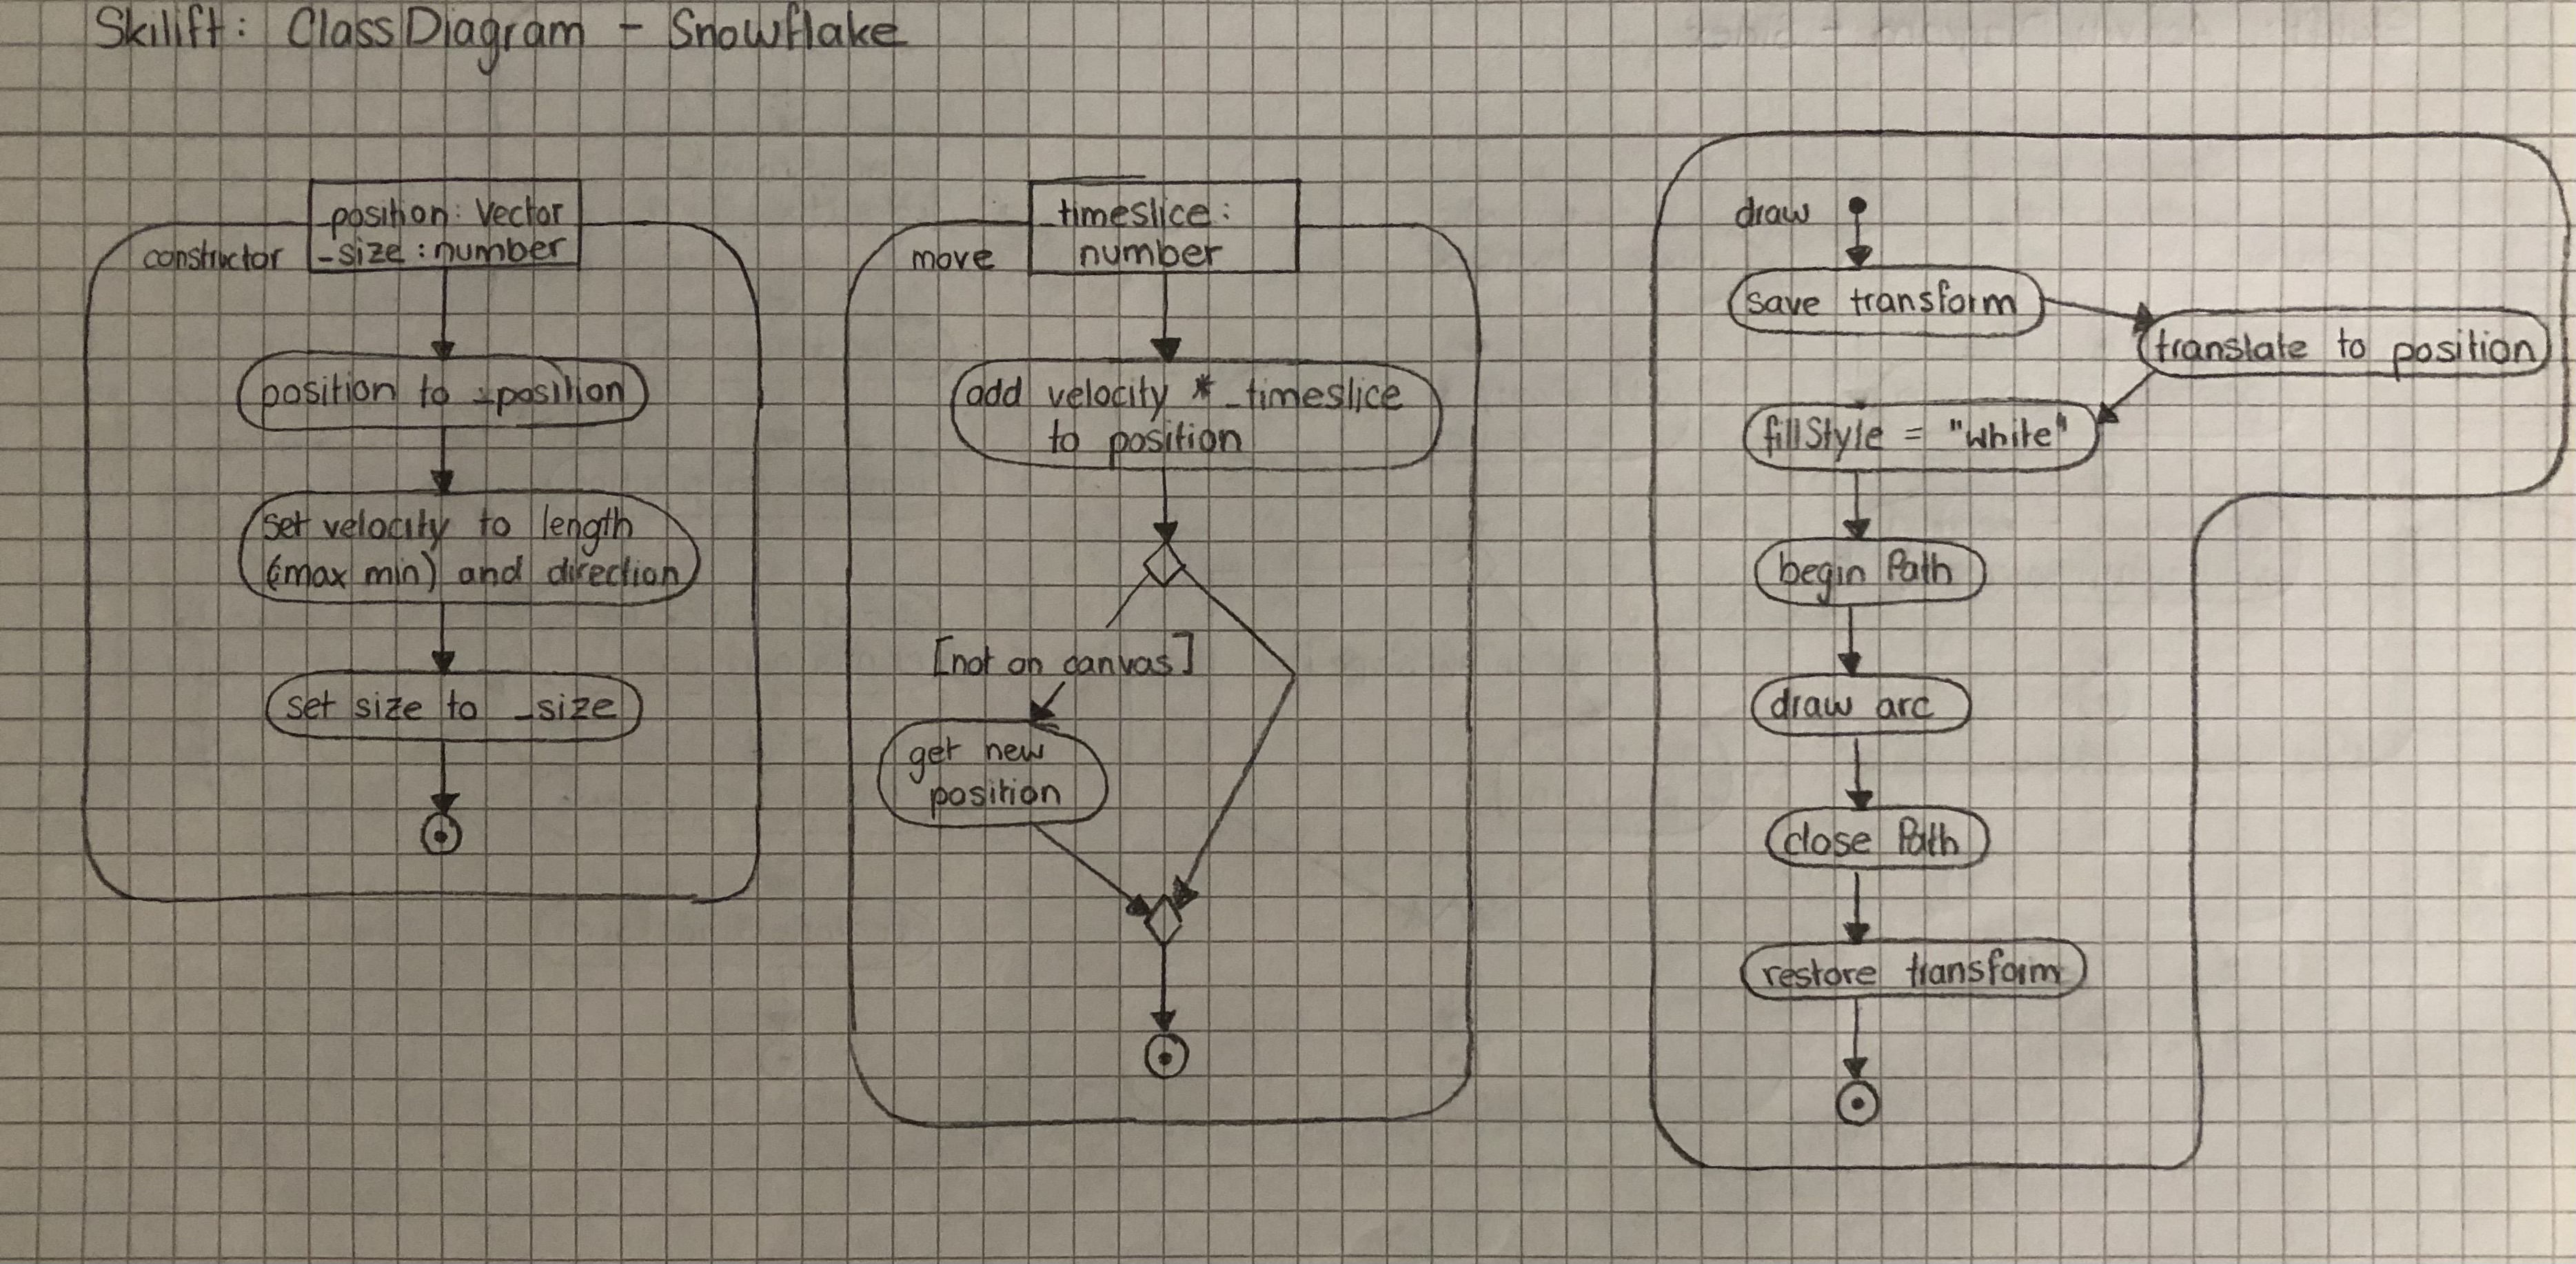 Skilift: ClassDiagram - Snowflake
constructor
_position: Vector
_size: number
position to _position
set velocity to length
(max min) and direction
set size to _size
move
_timeslice:
number
add velocity * _timeslice
to position
[not on canvas]
get new
position
draw
save transform
translate to position
fillStyle = "white"
begin Path
draw arc
close Path
restore transform